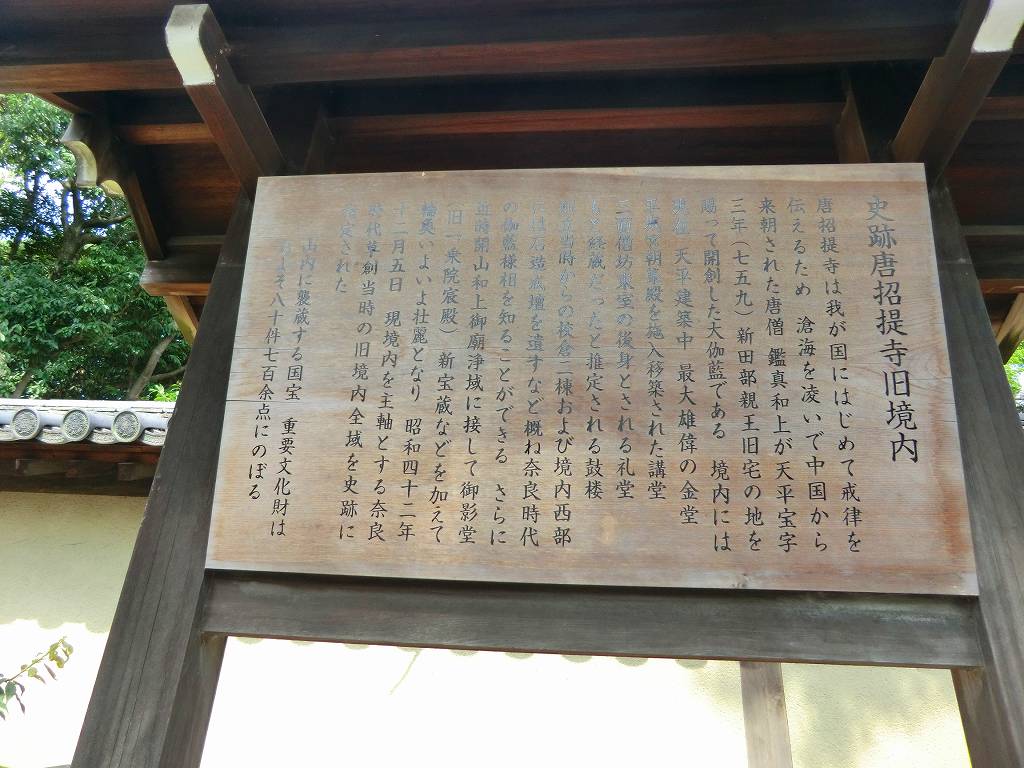 史跡唐招提寺旧境内
唐招提寺は我が国にはじめて戒律を
伝えるため 滄海を凌いで中国から
来朝された唐僧 鑑真和上が天平宝字
三年(七五九)新田部親王旧宅の地を
賜って開創した大伽藍である 境内には
天平建築中 最大雄偉の金堂
平城宮朝集殿を施入移築された講堂
三面僧坊東室の後身とされる礼堂
もと経蔵だったと推定される鼓楼
創立当時からの校倉二棟および境内西部
には石造戒壇を遺すなど概ね奈良時代
の伽藍様相を知ることができる さらに
近時開山和上御廟浄域に接して御影堂
(旧一乗院宸殿)新宝蔵などを加えて
輪奐いよいよ壮麗となり 昭和四十二年
十二月五日 現境内を主軸とする奈良
時代草創当時の旧境内全域を史跡に
指定された
山内に襲蔵する国宝 重要文化財は
およそ八十件七百余点にのぼる